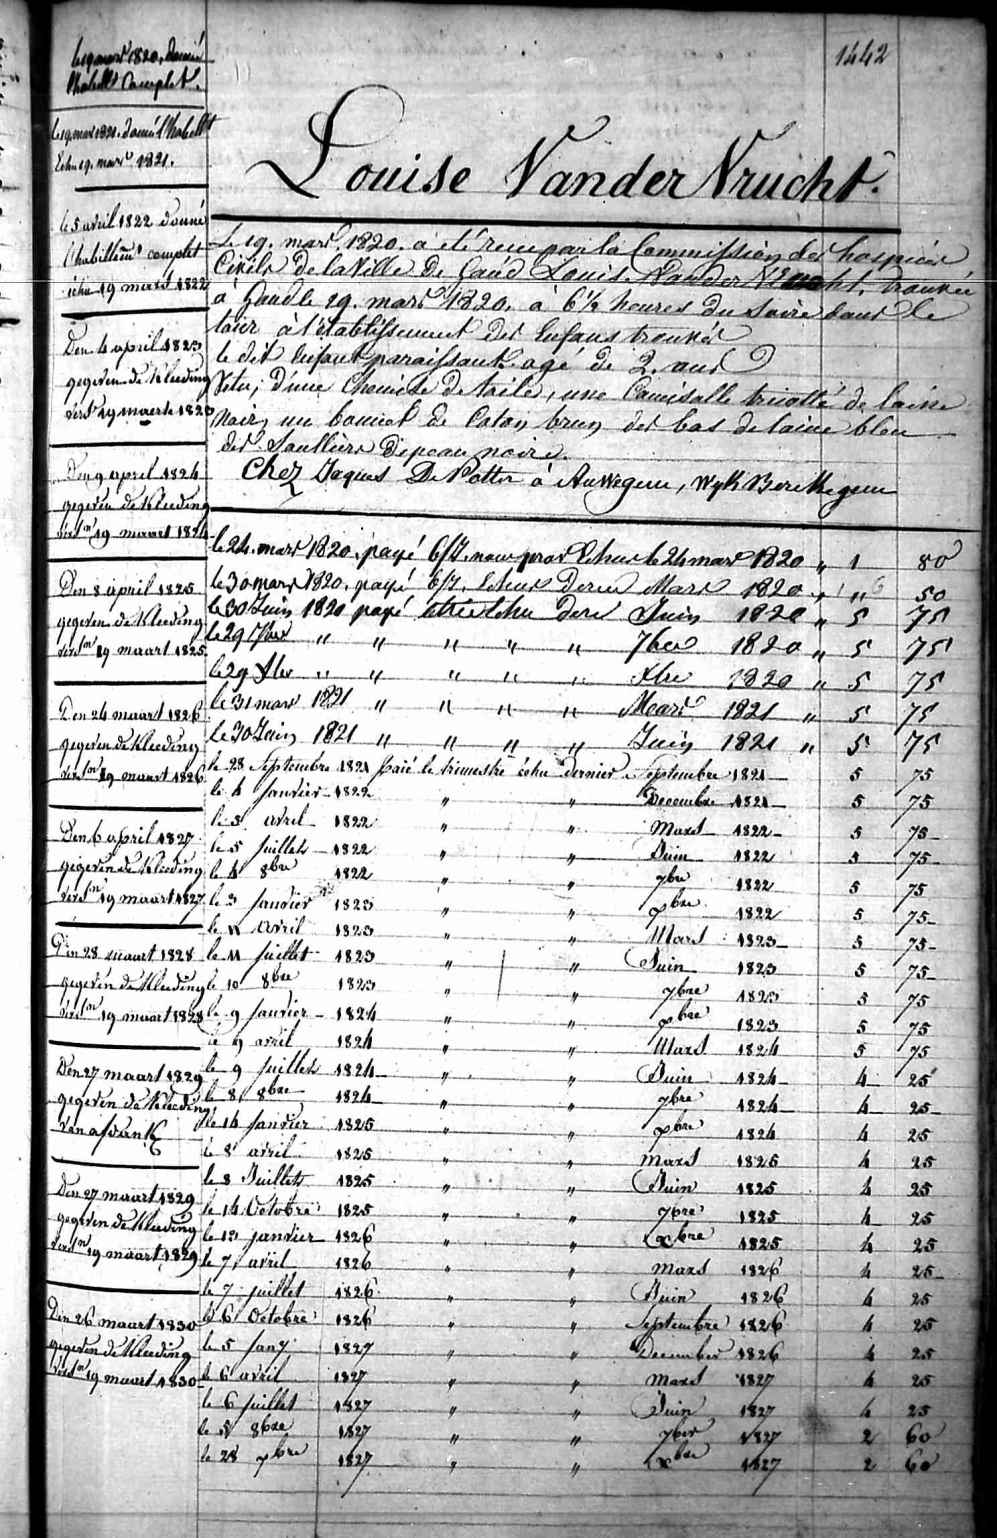 1442
Louise Vander Vrucht.
Le 19. mars 1820. a été recue par la Commission des hospices
Civils de la Ville de Gand Louise Vander Vrucht, trouvée
à Gand le 19. mars 1820. à 6 1/2 heures du Soire dans le
tour à l'établissement des Enfans trouvés
le dit Enfant paraissant agé de 2. ans
Vetu, d'une Chemise de toile, une Camisolle tricotté de laine
noir, un bonnet de Coton brun des bas de laine bleu
des Soulliers de peau noire.
Chez Jaques De Potter à Auwegem, Wyk Berchegem
le 19 mars 1820, donné
l'habill complet.
le 19. mars 1821. donné l'habillt
Echu 19. mars 1821.
le 5 avril 1822 donné
l'habillemt complet
échu 19 mars 1822
Den 4 april 1823
gegeven de Kleeding
19 maerte 1823
Den 9 april 1824
gegeven de Kleeding
19 maart 1824
Den 8 april 1825
gegeven de Kleeding
19 maart 1825
Den 24 maart 1826
gegeven de Kleeding
19 maart 1826
Den 6 april 1827
gegeven de Kleeding
19 maart 1827
Den 28 maart 1828
gegeven de Kleeding
19 maart 1828
Den 27 maart 1829
gegeven de Kleeding
Den 27 maart 1829
gegeven de Kleeding
19 maart 1829
Den 26 maart 1830
gegeven de Kleeding
19 maart 1830
le 24. mars 1820. payé le 24 mars 1820 " 1 80
le 30 mars 1820. payé Mars 1820 " " 50
le 30 Juin 1820 payé Juin 1820 " 5 75
le 29 7ber " " " " " 7ber 1820 " 5 75
le 29 Xbre " " " " " Xbre 1820 " 5 75
le 31 mars 1821 " " " " Mars 1821 " 5 75
le 30 Juin 1821 " " " " Juin 1821 " 5 75
le 28 Septembre 1821 paié le trimestre échu dernier Septembre 1821 5 75
le 4 janvier 1822 " " Decembre 1821 5 75
le 5 avril 1822 " " Mars 1822 5 75
le 5 juillet 1822 " " Juin 1822 5 75
le 4 8bre 1822 " " 7bre 1822 5 75
le 3 janvier 1823 " " xbre 1822 5 75
le 11 avril 1823 " " Mars 1823 5 75
le 11 juillet 1823 " " Juin 1823 5 75
le 10 8bre 1823 " " 7bre 1823 5 75
le 9 janvier 1824 " " xbre 1823 5 75
le 9 avril 1824 " " Mars 1824 5 75
le 9 juillet 1824 " " Juin 1824 4 25
le 8 8bre 1824 " " 7bre 1824 4 25
le 14 janvier 1825 " " xbre 1824 4 25
le 8 avril 1825 " " Mars 1825 4 25
le 8 Juillet 1825 " " Juin 1825 4 25
le 14 Octobre 1825 " " 7bre 1825 4 25
le 13 janvier 1826 " " xbre 1825 4 25
le 7 avril 1826 " " Mars 1826 4 25
le 7 juillet 1826 " " Juin 1826 4 25
le 6 Octobre 1826 " " Septembre 1826 4 25
le 5 janv 1827 " " December 1826 4 25
le 6 avril 1827 " " Mars 1827 4 25
le 6 juillet 1827 " " Juin 1827 4 25
le 8bre 1827 " " 7ber 1827 2 60
le 28 xbre 1827 " " xbre 1827 2 60